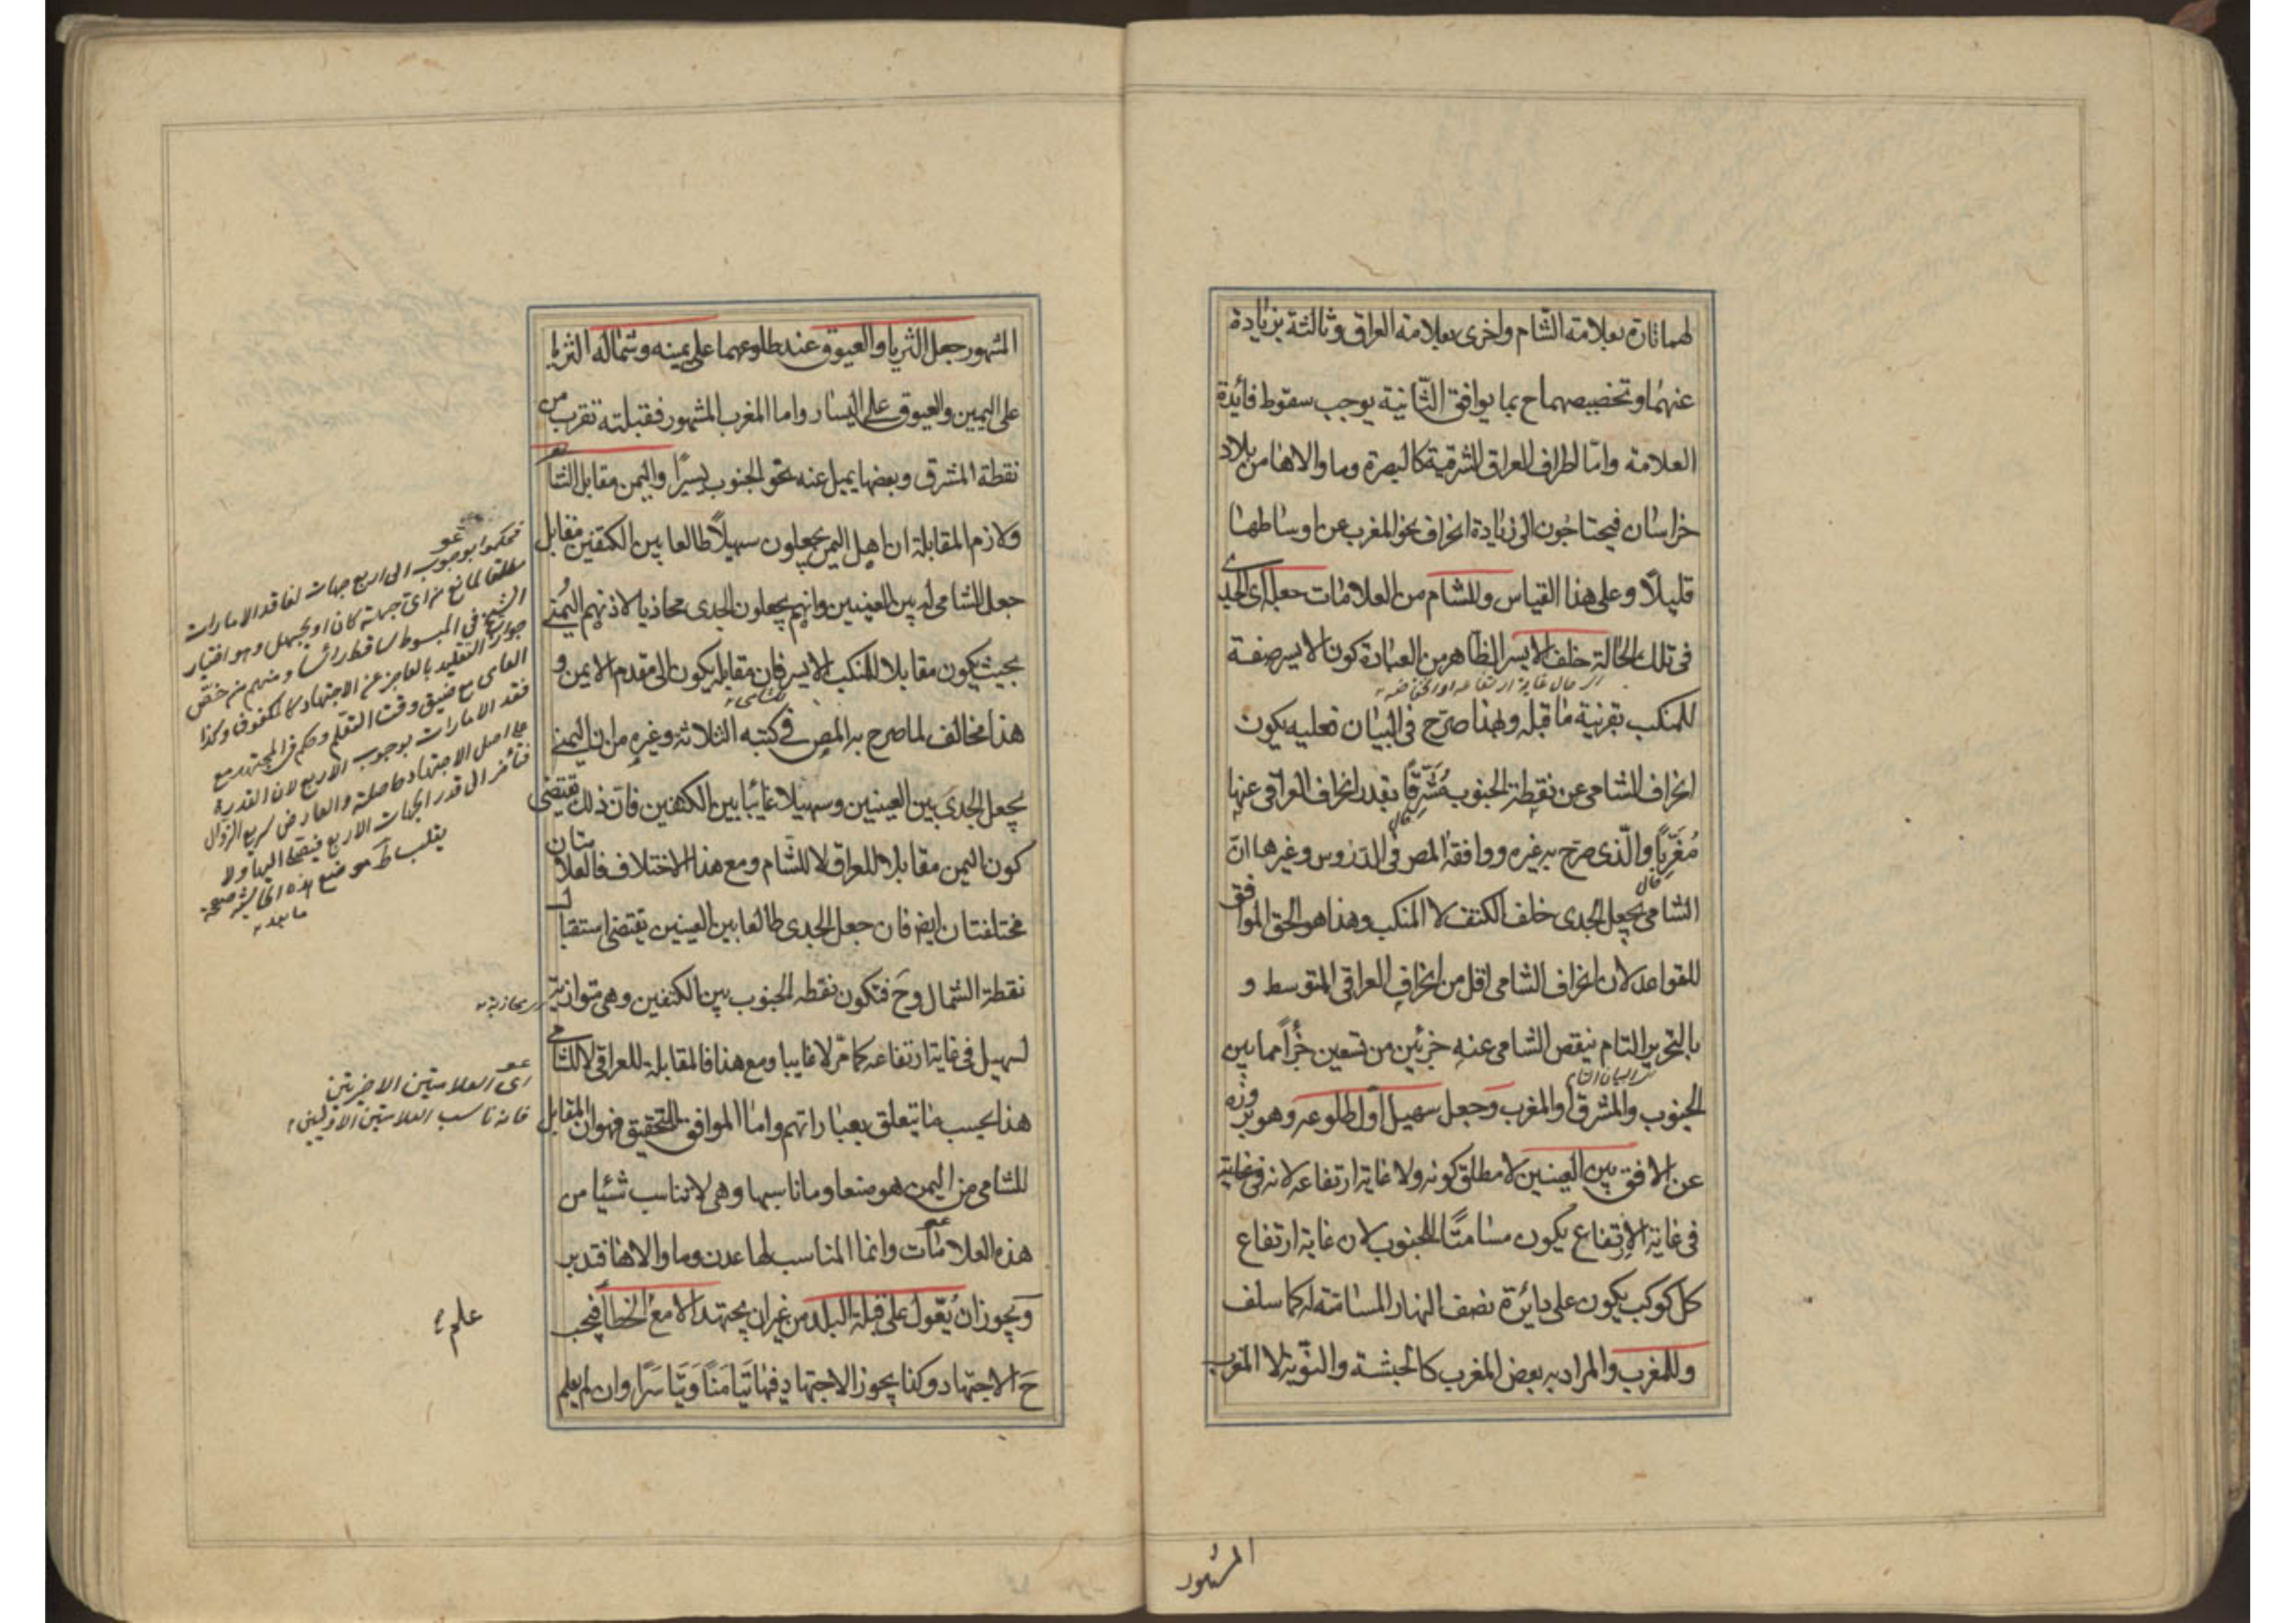 لهما تارة بعلامة الشام واخرى بعلامة العراق وثالثة بزيادة
عنهما وتخصيصهما ح بما يوافق الثانية يوجب سقوط فائدة
العلامة وامّا اطراف العراق الشرقية كالبصرة وما والاها من بلاد
خراسان فيحتاجون الى زيادة انحراف نحو المغرب عن اوساطها
قليلًا وعلى هذا القياس وللشام من العلامات جعله اى الجدى
فى تلك الحالة خلف الايسر الظاهر من العبارة كون الايسر صفة
اى حال غاية ارتفاعه او انخفاضه
للمنكب بقرنية ما قبله وبهذا صرّح فى البيان فعليه يكون
انحراف الشامى عن نقطة الجنوب مُشَرِّقًا بقدر انحراف العراقى عنها
مُغَرِّبًا والّذى صرّح به غيره ووافقه المص فى الدروس وغيرها انّ
الشامى يجعل الجدى خلف الكتف لا المنكب وهذا هو الحق الموافق
للقواعد لان انحراف الشامى اقل من انحراف العراقى المتوسط و
بالتحرير التام ينقص الشامى عنه جزئين من تسعين جُزأً مما بين
الجنوب والمشرق او المغرب وجعل سهيل اول طلوعه وهو بروزه
عن الافق بين العينين لا مطلق كونه ولا غاية ارتفاعه لانه فى غاية
فى غاية الارتفاع يكون مسامتًا للجنوب لان غاية ارتفاع
كل كوكب يكون على دائرة نصف النهار المسامتة له كما سلف
وللمغرب والمراد به بعض المغرب كالحبشة والنوبة لا المغرب
المشهور
المشهور جعل الثريا والعيوق عند طلوعهما على يمينه وشماله الثريا
على اليمين والعيوق على اليسار واما المغرب المشهور فقبلته تقرب من
نقطة المشرق وبعضها يميل عنه نحو الجنوب يسيرًا واليمن مقابل الشام
ولازم المقابلة ان اهل اليمن يجعلون سهيلًا طالعا بين الكتفين مقابل
جعل الشامى له بين العينين وانهم يجعلون الجدى محاذيا لاذنهم اليُمنى
بحيث يكون مقابلا للمنكب الايسر فان مقابله يكون الى مقدم الايمن و
هذا مخالف لما صرح به المص فى كتبه الثلاثة وغيره من ان اليمنى
يجعل الجدى بين العينين وسهيلا غائبا بين الكتفين فان ذلك يقتضى
كون اليمن مقابلا للعراق لا للشام ومع هذا الاختلاف فالعلامتان
مختلفتان ايض فان جعل الجدى طالعا بين العينين يقتضى استقبال
نقطة الشمال وحَ فتكون نقطة الجنوب بين الكتفين وهى موازية
لسهيل فى غاية ارتفاعه كما مرّ لا غايبا ومع هذا فالمقابلة للعراقى لا للشامى
هذا بحسب ما يتعلق بعباراتهم واما الموافق للتحقيق فهو ان المقابل
للشامى من اليمن هو صنعا وما ناسبها وهى لا تناسب شئيا من
هذه العلامات وانما المناسب لها عدن وما والاها فتدبر
ويجوز ان يُعوّل على قبلة البلد من غير ان يجتهد الا مع الخطأ فيجب
حَ الاجتهاد وكذا يجوز الاجتهاد فيها تَيامنًا وَتَياسَرًا وان لم يعلم
مطلقا لمانع من اى جهة كان او بجهل وهو اختيار
الشيخ فى المبسوط
جواز التقليد بالعاجز عن الاجتهاد كالمكفوف وكذا
العامى مع ضيق وقت التعلم وحكم فى المجتهد مع
فقد الامارات بوجوب الاربع لان القدرة
على اصل الاجتهاد حاصلة والعارض سريع الزوال
محاذية
اى العلامتين الاخيرتين
فانه ناسب العلامتين الاوليين
علم